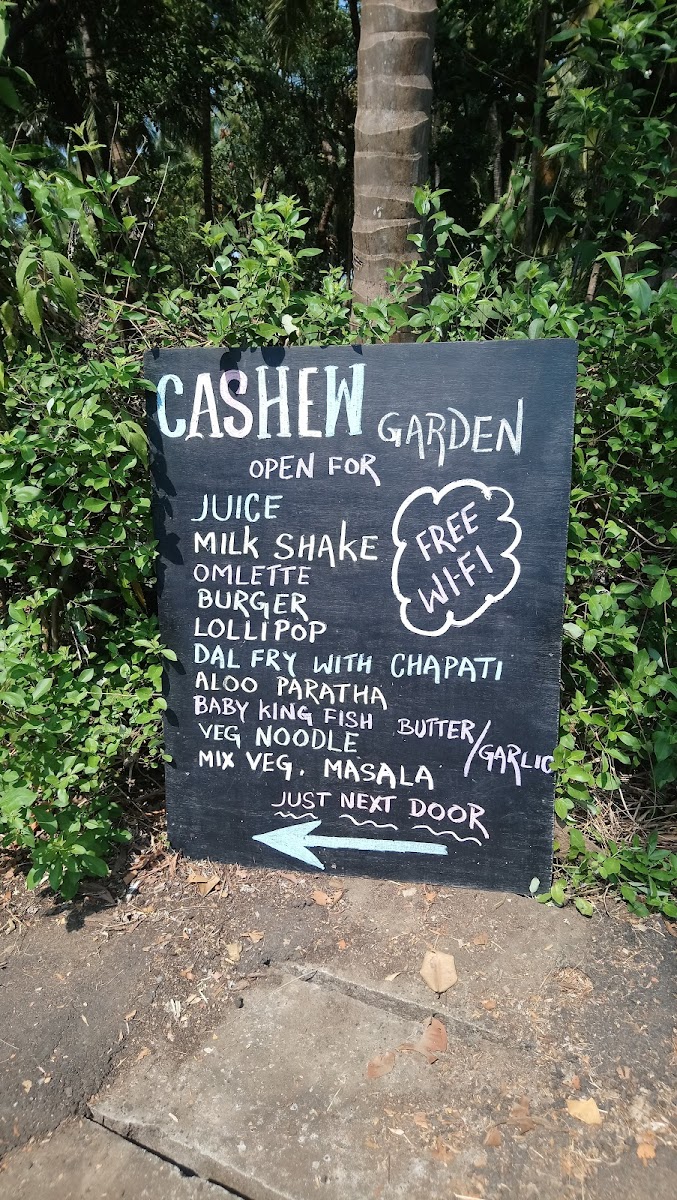 CASHEW GARDEN
OPEN FOR
JUICE
MILK SHAKE
FREE
WI-FI
OMLETTE
BURGER
LOLLIPOP
DAL FRY WITH CHAPATI
ALOO PARATHA
BABY KING FISH BUTTER/GARLIC
VEG NOODLE
MIX VEG. MASALA
JUST NEXT DOOR